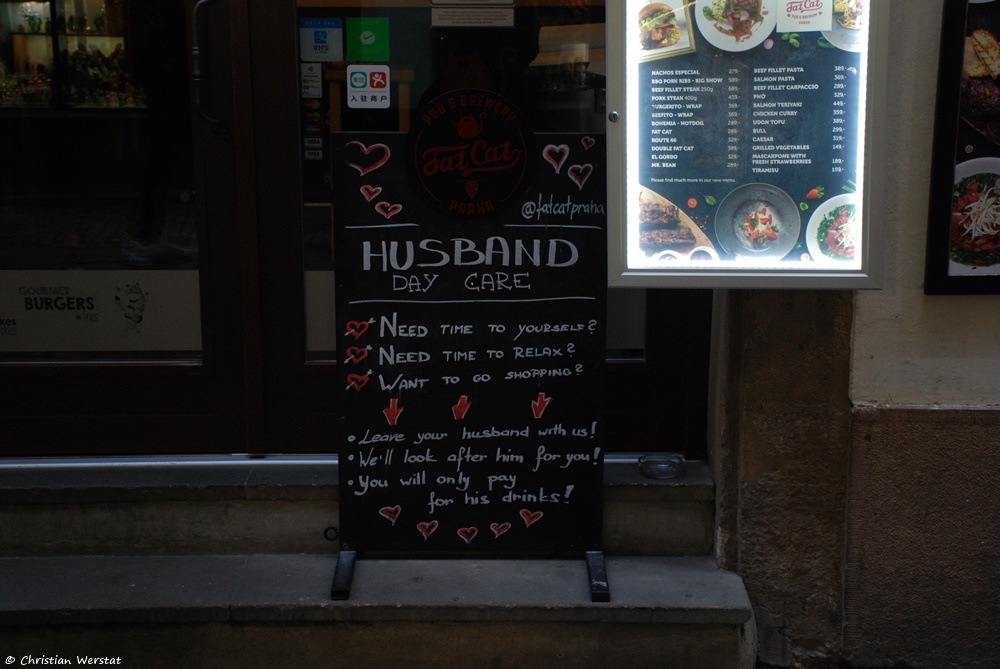 PUB & BREWERY
Fat Cat
PRAHA
@fatcatpraha
HUSBAND
DAY CARE
NEED TIME TO YOURSELF?
NEED TIME TO RELAX?
WANT TO GO SHOPPING?
• Leave your husband with us!
• We'll look after him for you!
• You will only pay
for his drinks!
入驻商户
GOURMET
BURGERS
wines
Fat Cat
PUB & BREWERY
PRAHA
NACHOS ESPECIAL 279,-
BBQ PORK RIBS - BIG SHOW 589,-
BEEF FILLET STEAK 250g 689,-
PORK STEAK 400g 439,-
BURGERITO - WRAP 369,-
BEEFITO - WRAP 369,-
BOHEMIA - HOTDOG 289,-
FAT CAT 289,-
ROUTE 66 329,-
DOUBLE FAT CAT 399,-
EL GORDO 329,-
MR. BEAN 289,-
BEEF FILLET PASTA 389,-
SALMON PASTA 369,-
BEEF FILLET CARPACCIO 289,-
PHỞ 329,-
SALMON TERIYAKI 449,-
CHICKEN CURRY 359,-
UDON TOFU 389,-
BULL 299,-
CAESAR 319,-
GRILLED VEGETABLES 149,-
MASCARPONE WITH
FRESH STRAWBERRIES 189,-
TIRAMISU 159,-
Please find much more in our new menu.
© Christian Werstat